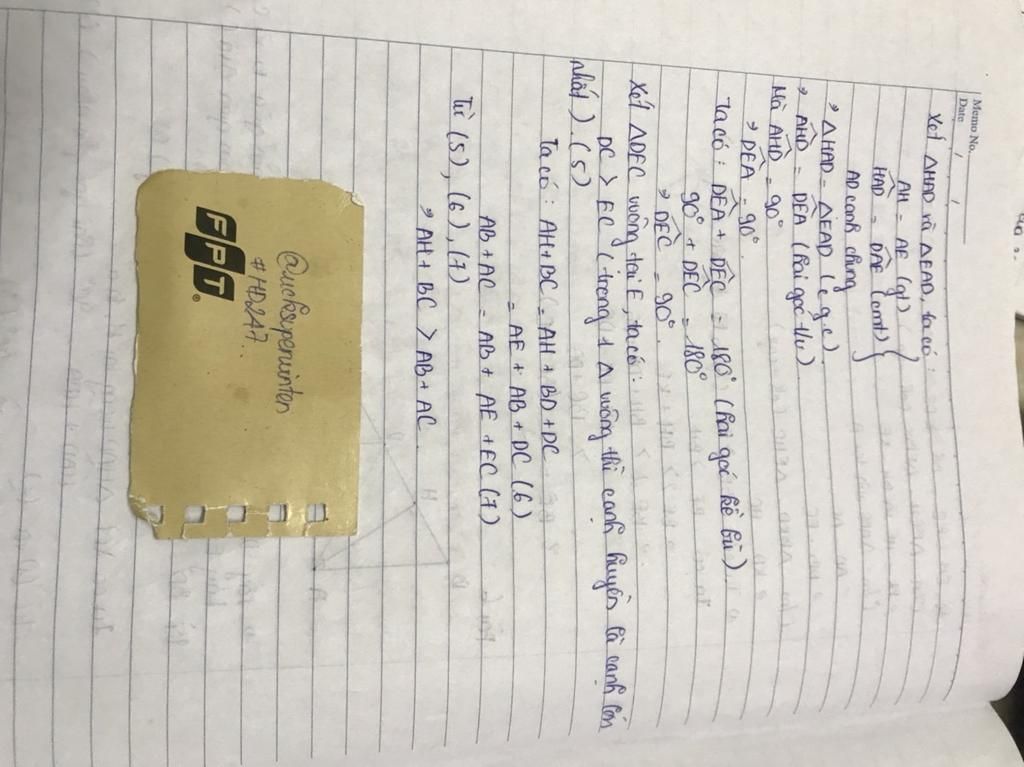 Memo No.
Date / /
Xét ΔHAD và ΔEAD, ta có:
AH = AE (gt)
HAD = DAE (cmt)
AD cạnh chung
→ ΔHAD = ΔEAD (c.g.c)
→ AHD = DEA (hai góc t/ư)
Mà AHD = 90°
→ DEA = 90°
Ta có: DEA + DEC = 180° (hai góc kề bù)
90° + DEC = 180°
→ DEC = 90°
Xét ΔDEC vuông tại E, ta có:
DC > EC (trong 1 Δ vuông thì cạnh huyền là cạnh lớn
nhất). (5)
Ta có: AH + BC = AH + BD + DC
= AE + AB + DC (6)
AB + AC = AB + AE + EC (7)
Từ (5), (6), (7)
→ AH + BC > AB + AC
FPT
#HD247